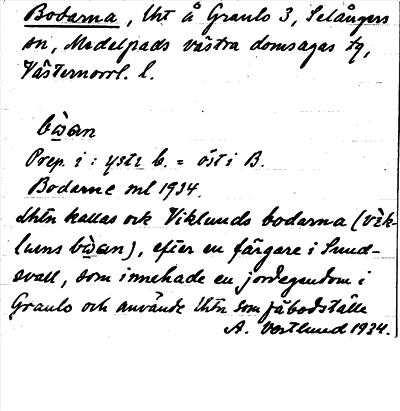 Bodarna, Uht å Granlo 3, Selångers
sn, Medelpads västra domsagas tg,
Västernorrl. l.
bò̱an
Prep. i : ysti b. = öst i B.
Bodarne ml 1934.
Uhtn kallas ock Viklunds bodarna (vìk-
luns bò̱an), efter en färgare i Sund-
svall, som innehade en jordegendom i
Granlo och använde Uhtn som fäbodställe
A. Vestlund 1934.